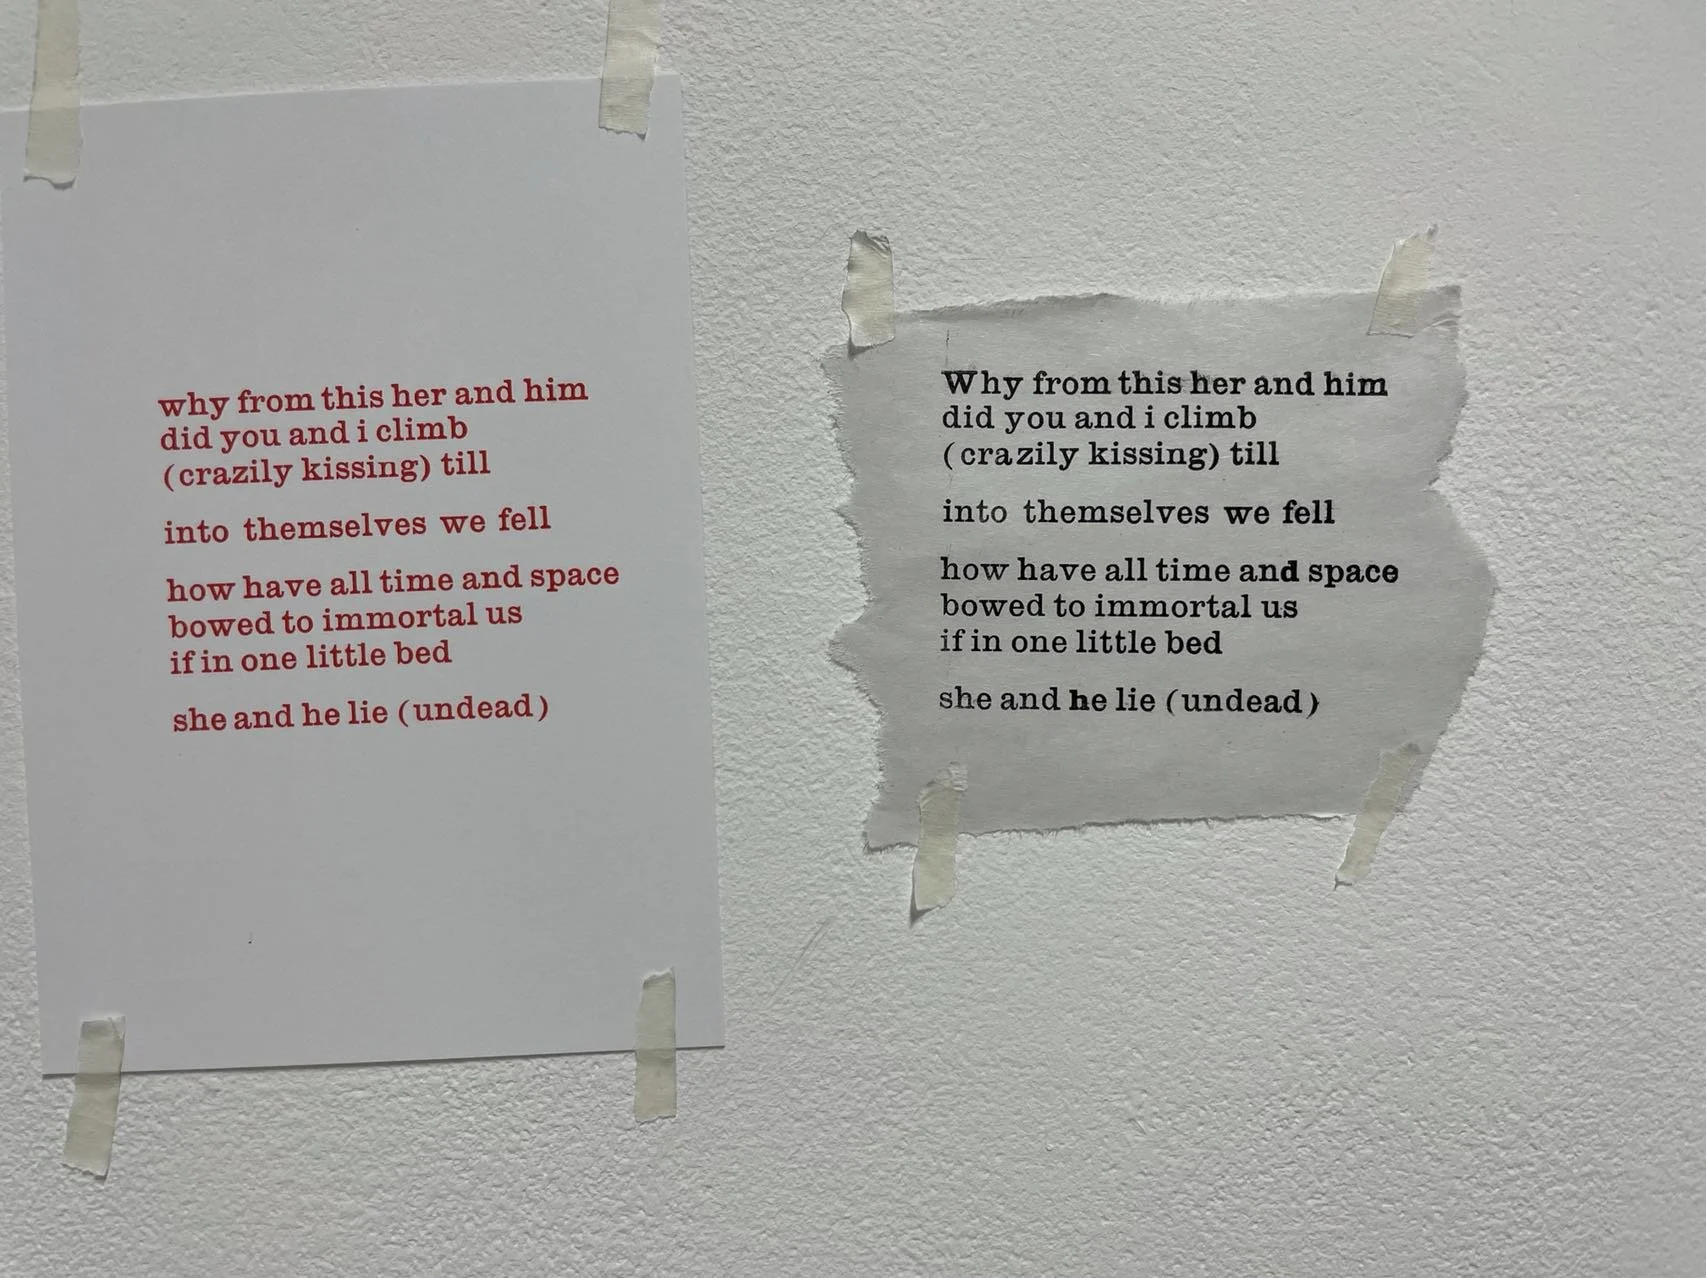 why from this her and him
did you and i climb
(crazily kissing) till
into themselves we fell
how have all time and space
bowed to immortal us
if in one little bed
she and he lie (undead)
Why from this her and him
did you and i climb
(crazily kissing) till
into themselves we fell
how have all time and space
bowed to immortal us
if in one little bed
she and he lie (undead)